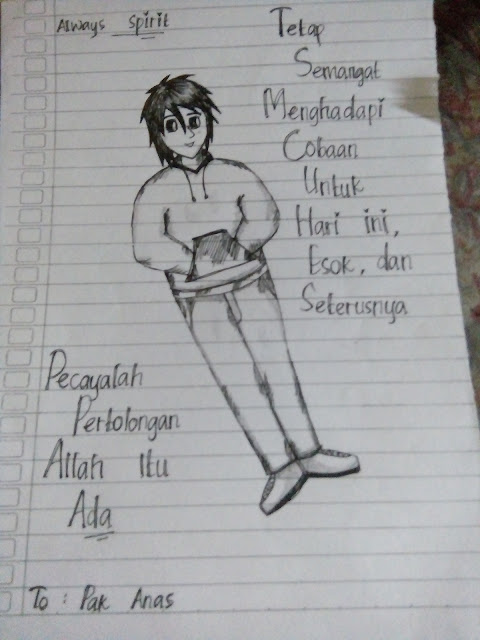 Always spirit
Tetap
Semangat
Menghadapi
Cobaan
Untuk
Hari ini,
Esok, dan
Seterusnya
Pecayalah
Pertolongan
Allah Itu
Ada
To : Pak Anas